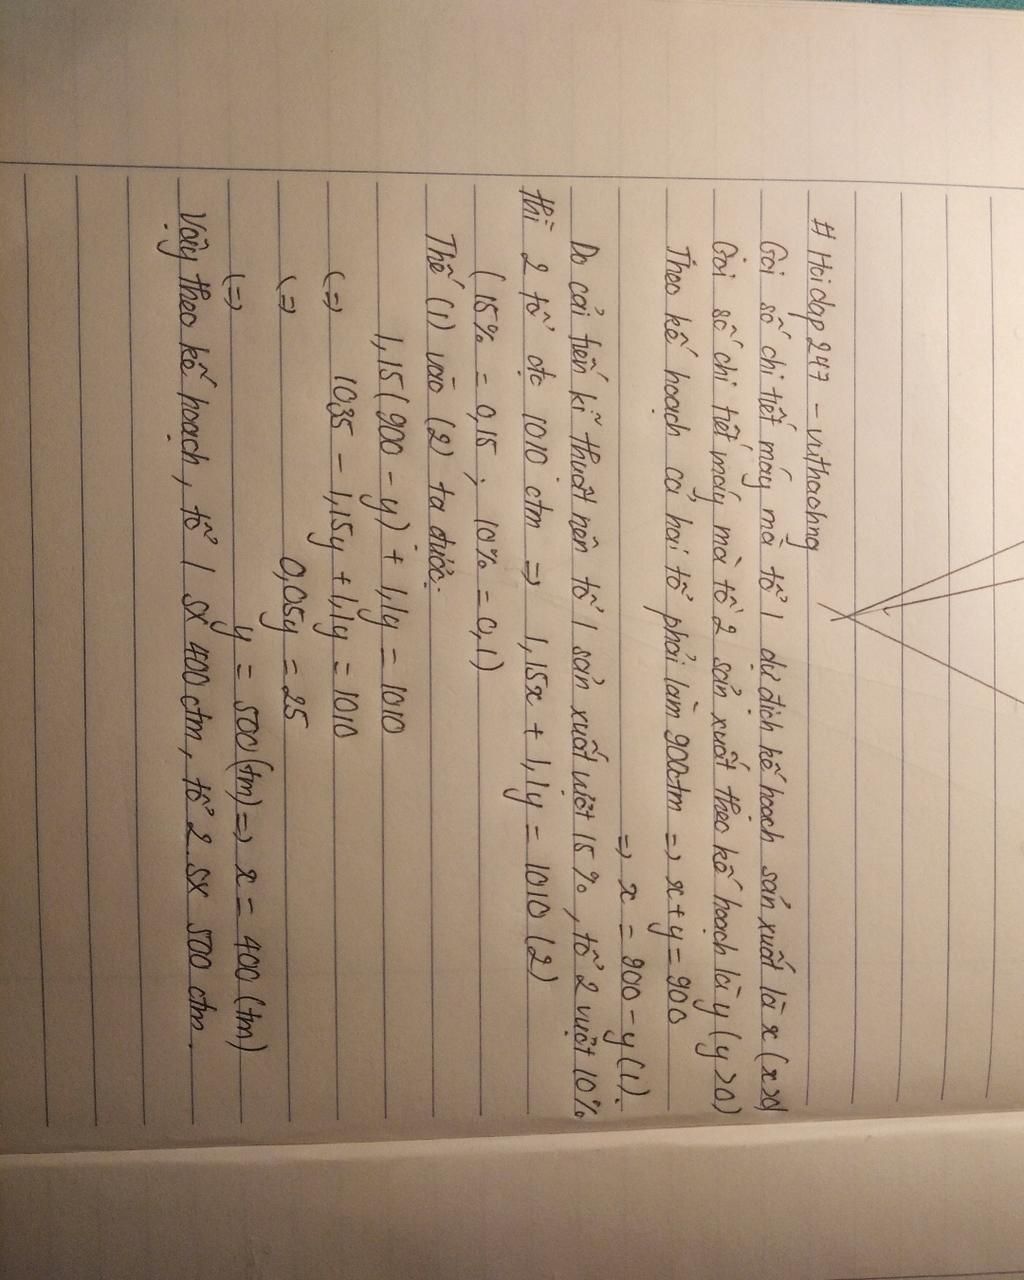 # Hoidap247 - vuthaohng
Gọi số chi tiết máy mà tổ 1 dự định kế hoạch sản xuất là x (x>0)
Gọi số chi tiết máy mà tổ 2 sản xuất theo kế hoạch là y (y>0)
Theo kế hoạch cả hai tổ phải làm 900ctm => x+y=900
=> x = 900-y (1).
Do cải tiến kĩ thuật nên tổ 1 sản xuất vượt 15%, tổ 2 vượt 10%
thì 2 tổ đc 1010 ctm => 1,15x + 1,1y = 1010 (2)
(15% = 0,15; 10% = 0,1)
Thế (1) vào (2) ta được:
1,15(900-y) + 1,1y = 1010
(=) 1035 - 1,15y + 1,1y = 1010
(=) 0,05y = 25
(=) y = 500(tm) => x = 400 (tm)
Vậy theo kế hoạch, tổ 1 sx 400 ctm, tổ 2 sx 500 ctm.